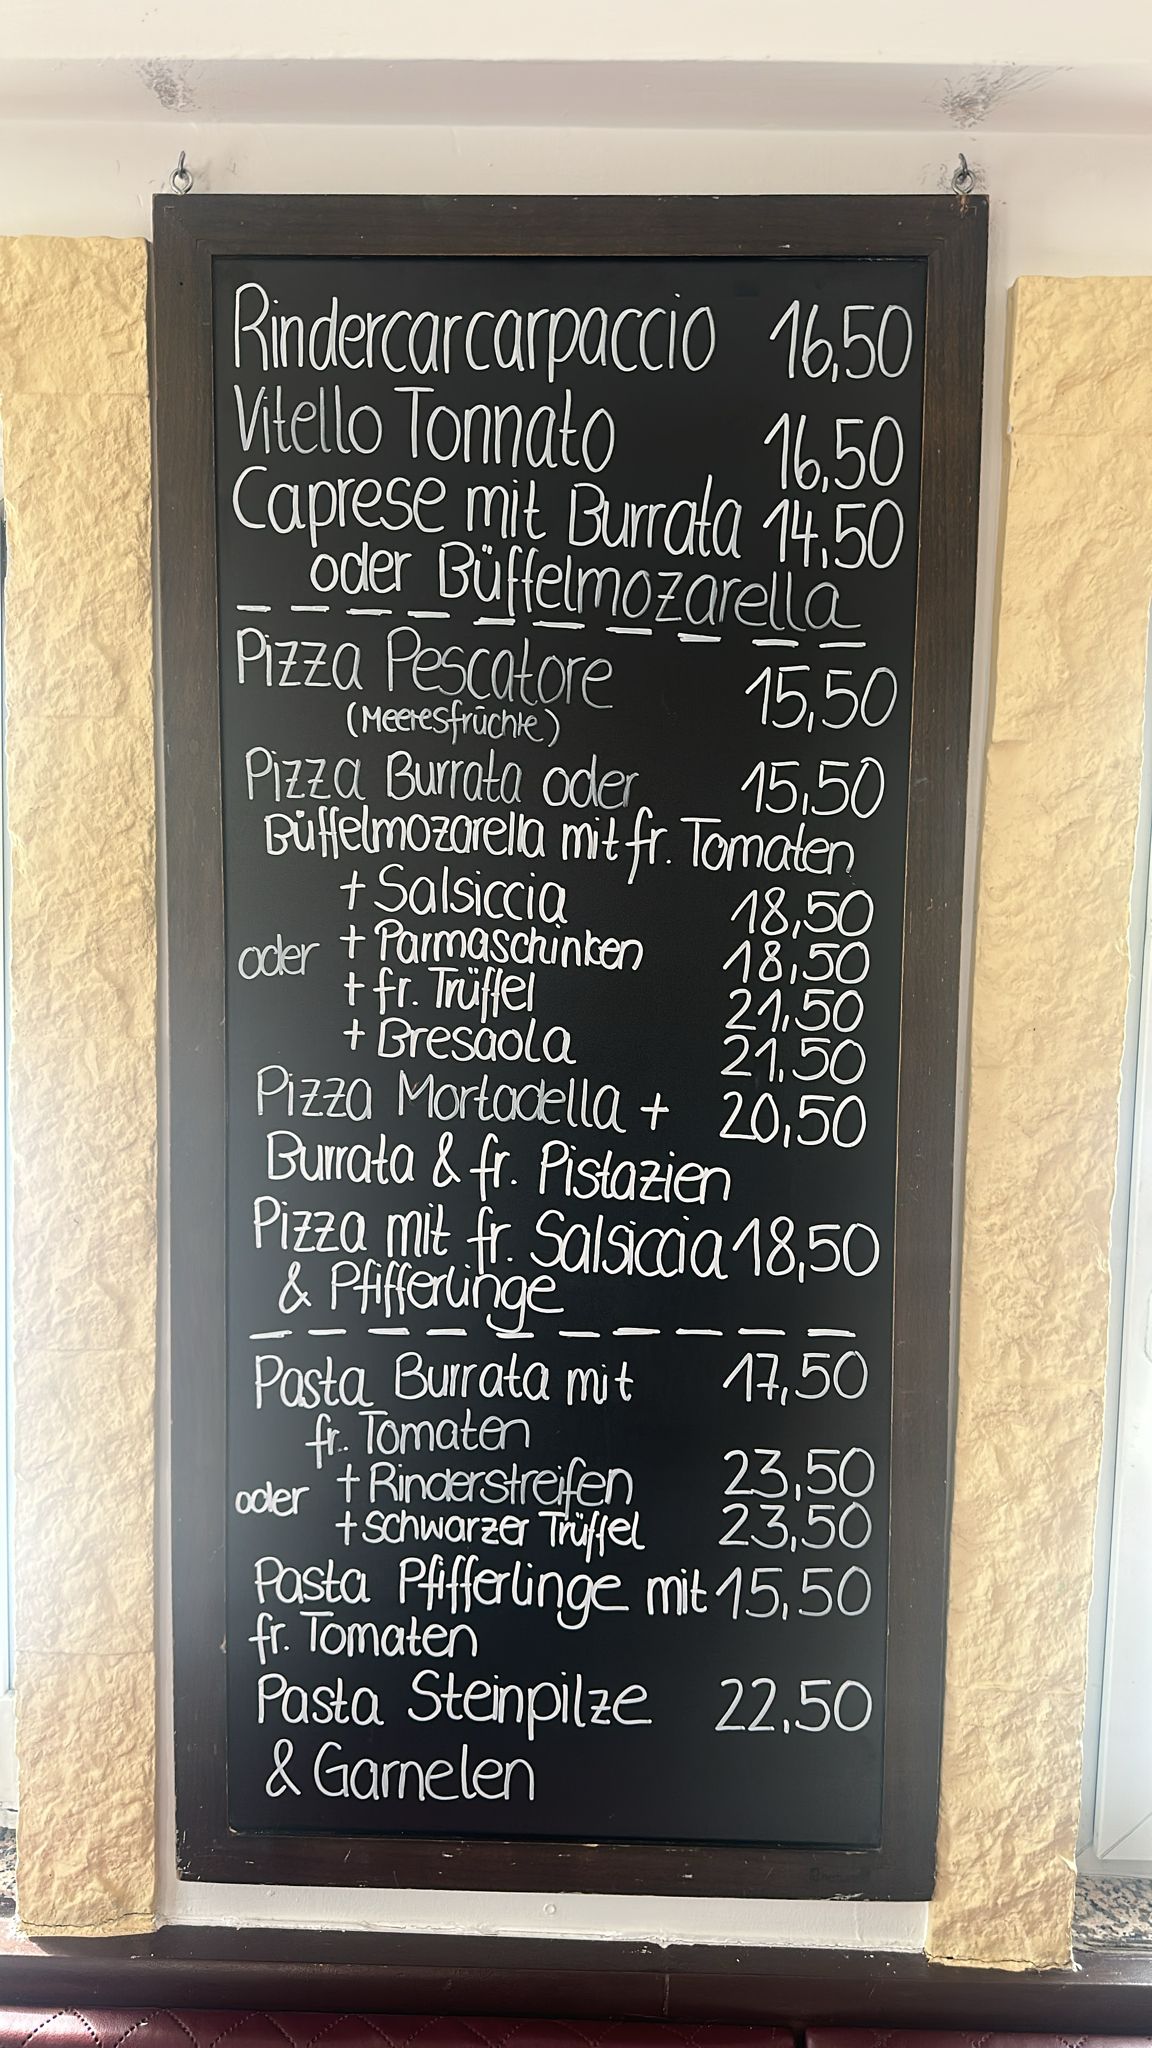 Rindercarcarpaccio 16,50
Vitello Tonnato 16,50
Caprese mit Burrata 14,50
oder Büffelmozarella
Pizza Pescatore 15,50
(Meeresfrüchte)
Pizza Burrata oder 15,50
Büffelmozarella mit fr. Tomaten
+ Salsiccia 18,50
oder + Parmaschinken 18,50
+ fr. Trüffel 21,50
+ Bresaola 21,50
Pizza Mortadella + 20,50
Burrata & fr. Pistazien
Pizza mit fr. Salsiccia 18,50
& Pfifferlinge
Pasta Burrata mit 17,50
fr. Tomaten
+ Rinderstreifen 23,50
oder + schwarzer Trüffel 23,50
Pasta Pfifferlinge mit 15,50
fr. Tomaten
Pasta Steinpilze 22,50
& Garnelen